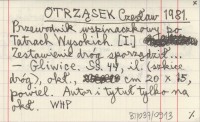 OTRZĄSEK Czesław 1981.
Przewodnik wspinaczkowy po
Tatrach Wysokich. [I]
Zestawienie dróg sporządził...
Gliwice. Ss. 49, il. (szkice
dróg), okł., cm 20 x 15,
powiel. Autor i tytuł tylko na
okł. WHP